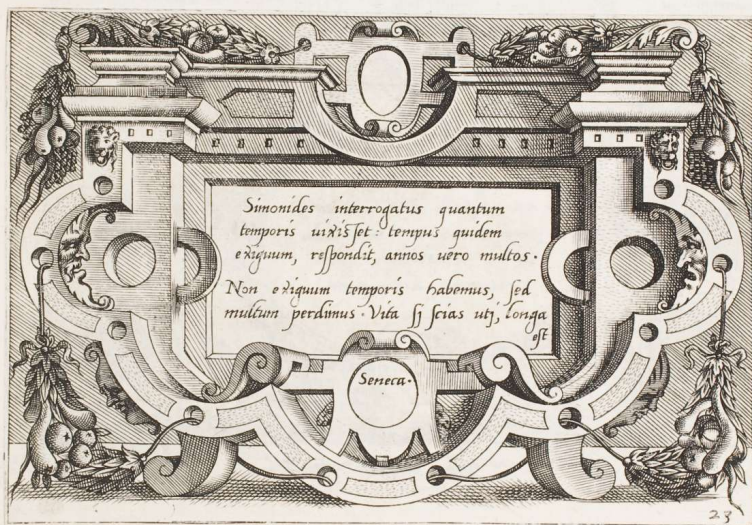 Simonides interrogatus quantum
temporis uixisset: tempus quidem
exiguum, respondit, annos uero multos.
Non exiguum temporis habemus, sed
multum perdimus. Vita sj scias utj, longa
est
Seneca.
23